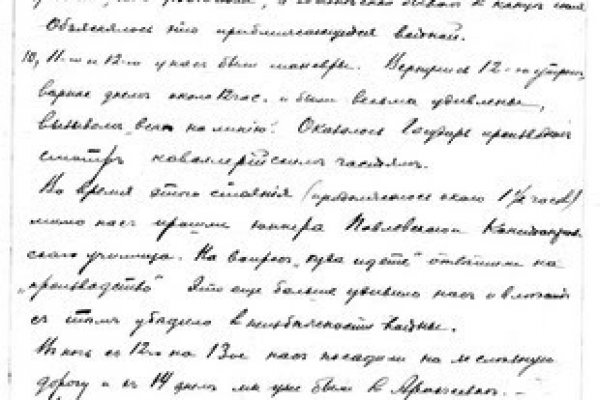 Объяснялось это приближающейся войной.
10, 11-го и 12-го у нас были маневры. Вернулись 12-го утром,
вернее днем около 12 час. и были весьма удивлены,
вызывом "всех на линию". Оказалось Государь производил
смотр кавалерийским частям.
Во время этого стояния (продолжалось около 1½ часов)
мимо нас прошли юнкера Павловского
ского училища. На вопрос "куда идете" ответили на
"производство" Это еще больше удивило нас и
с тем убедило в неизбежности войны.
В ночь с 12-го на 13-ое нас посадили на железную
дорогу и с 14 днем мы уже были в